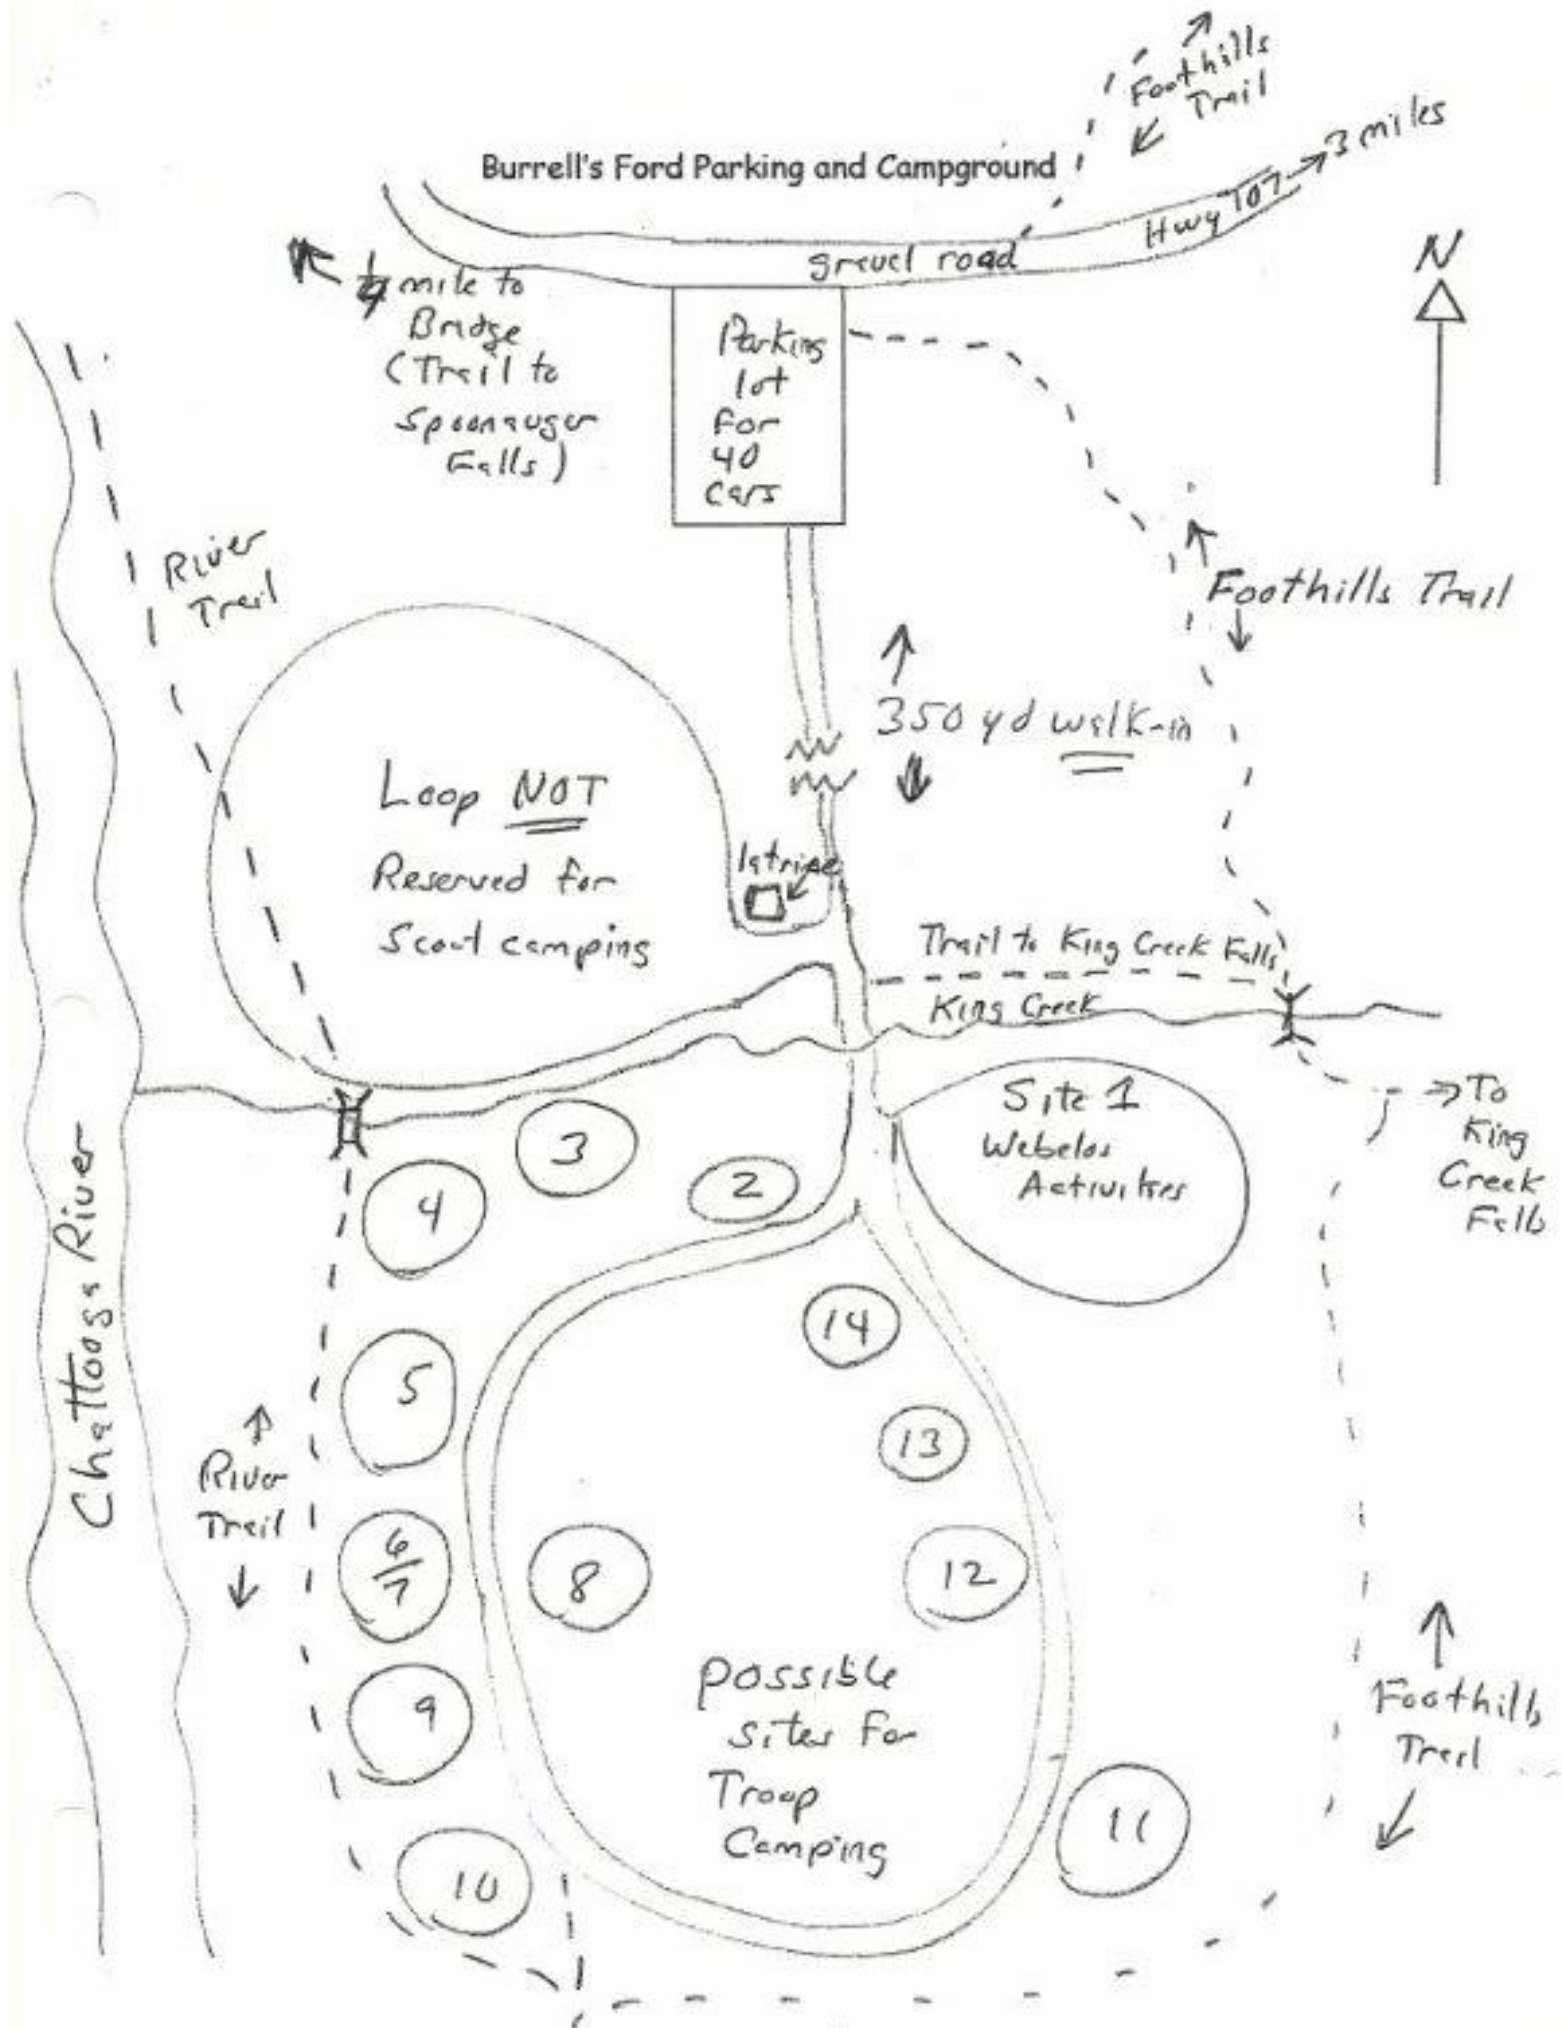 Foothills
Trail
Burrell's Ford Parking and Campground
3 miles
Hwy 107
gravel road
N
mile to
Bridge
(Trail to
Spoonauger
Falls)
Parking
lot
for
40
cars
River
Trail
Foothills Trail
350 yd walk-in
Loop NOT
Reserved for
Scout camping
latrine
Trail to King Creek Falls
King Creek
Site 1
Webelos
Activities
To
King
Creek
Falls
3
2
4
Chattooga River
14
5
13
River
Trail
6
7
8
12
possible
sites for
Troop
Camping
9
Foothills
Trail
11
10